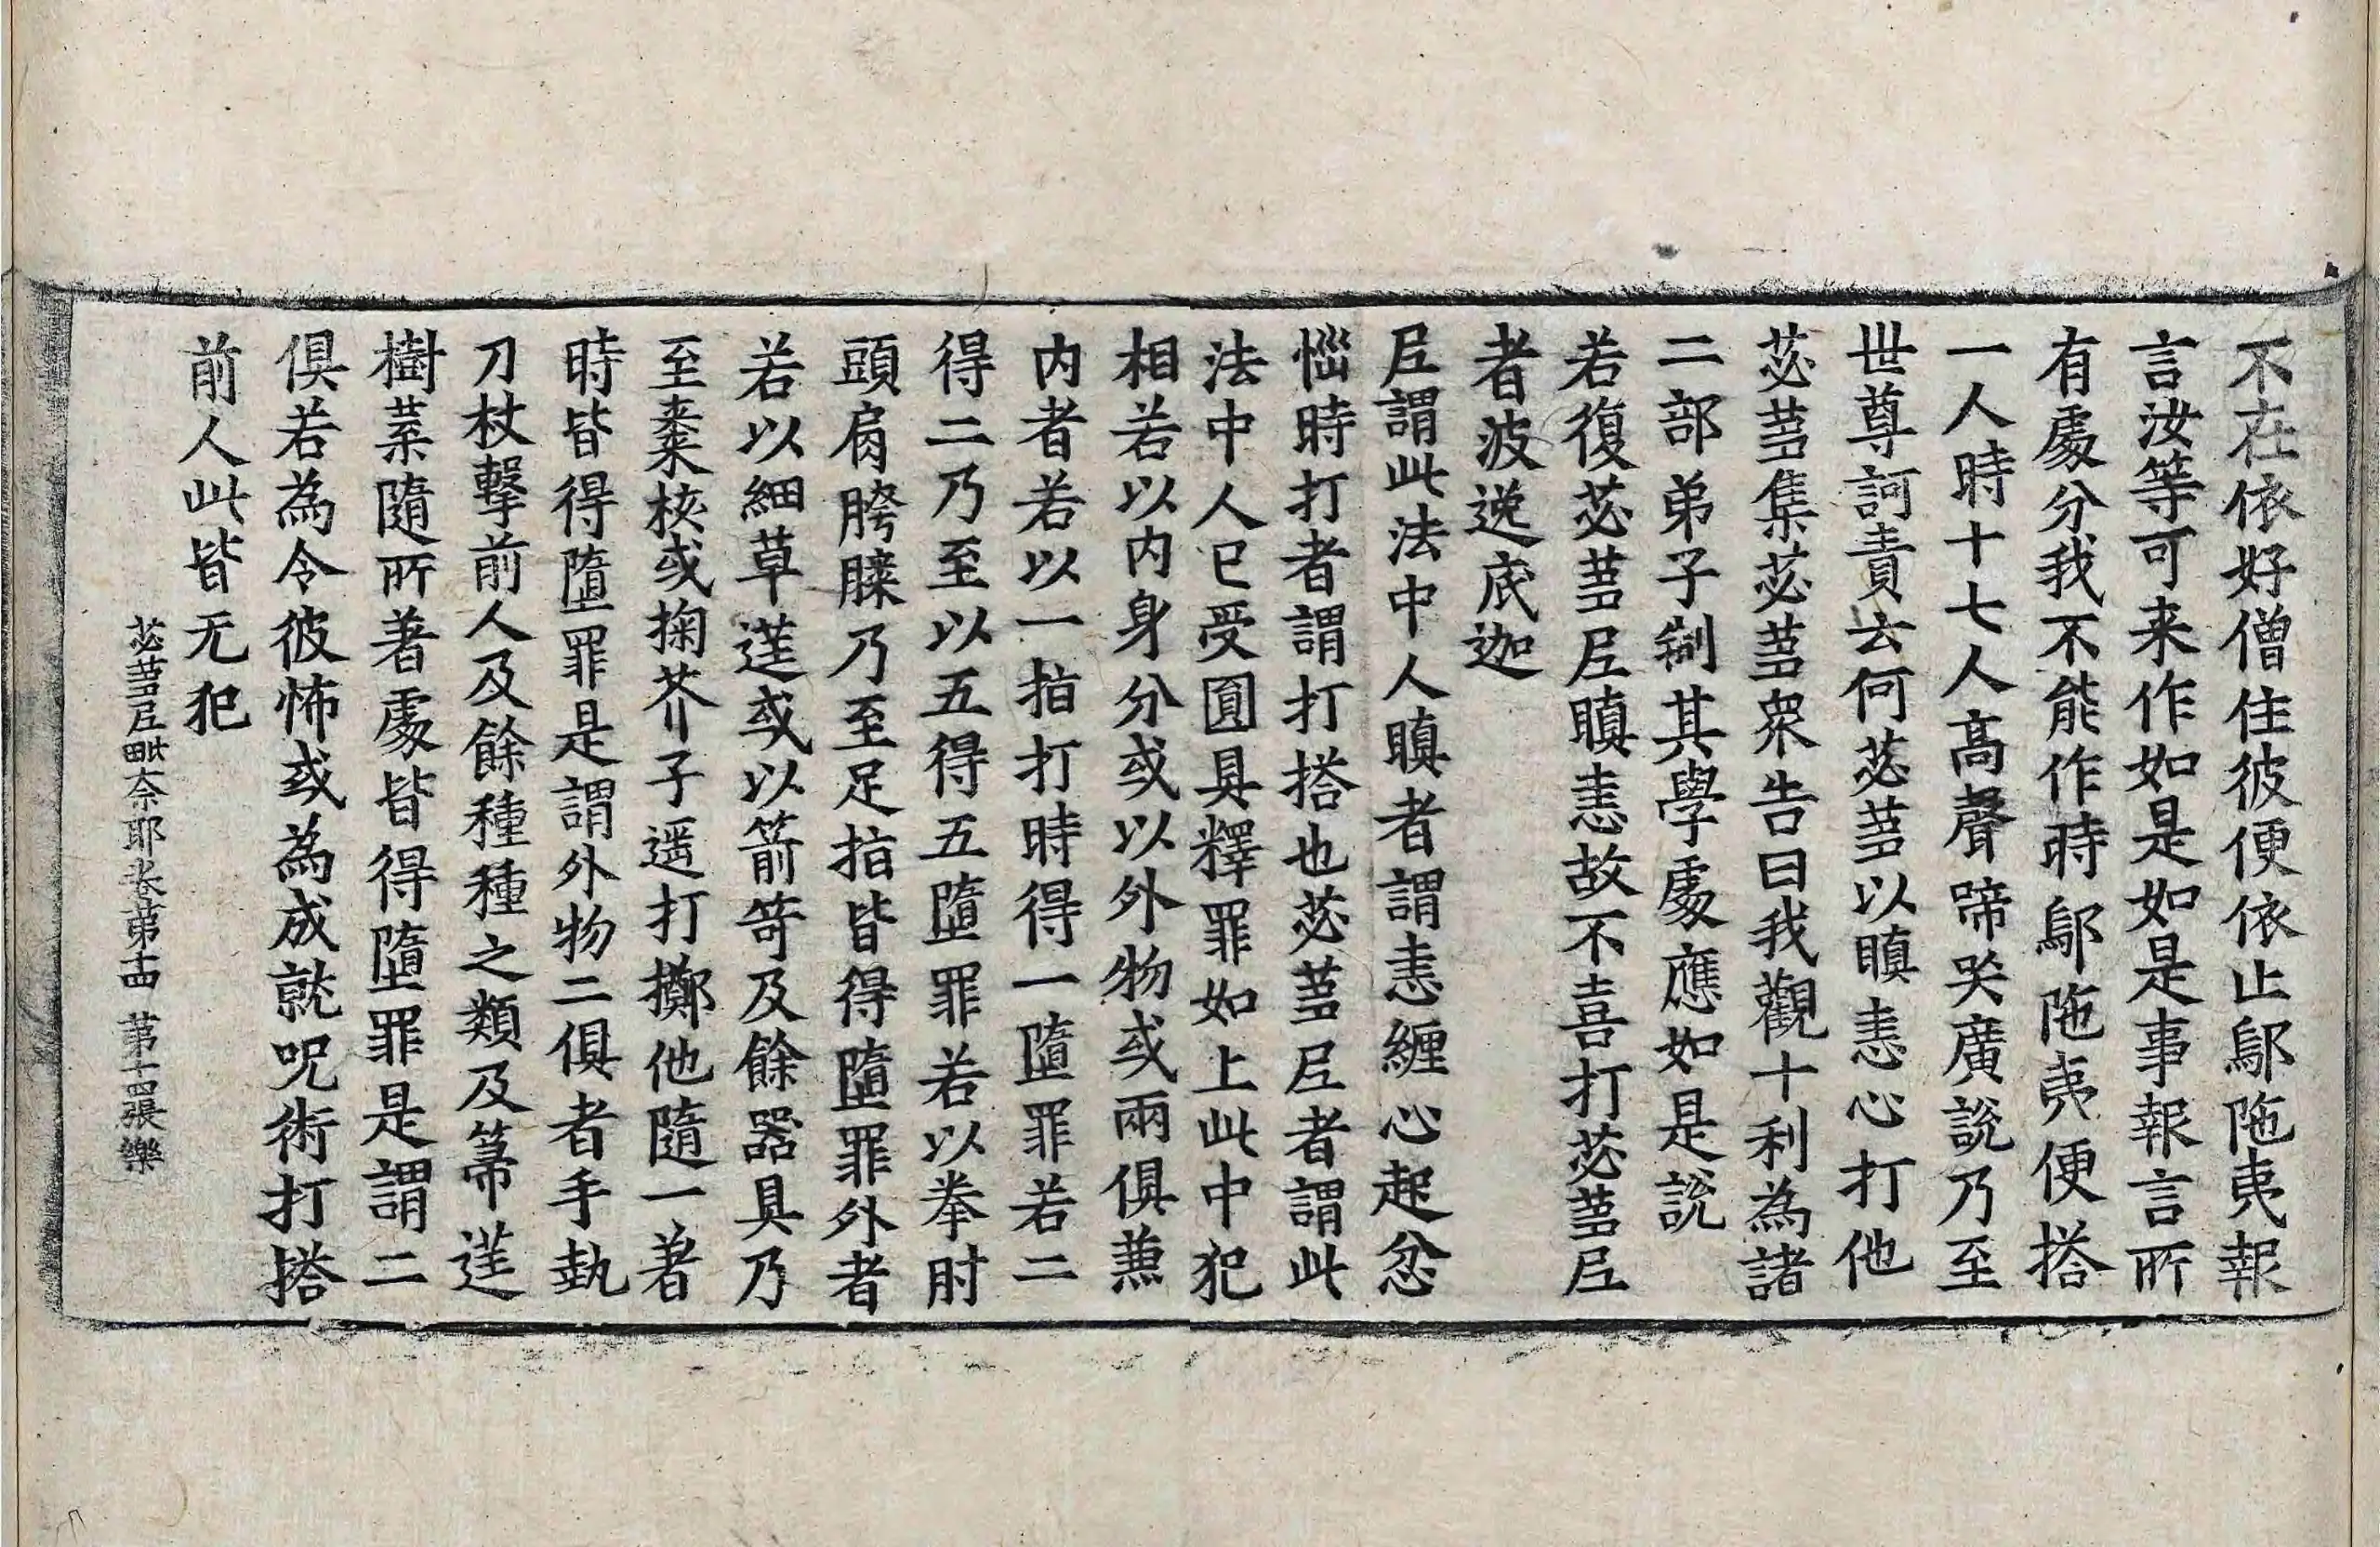 不在依好僧住彼便依止鄔陁夷報
言汝等可来作如是如是事報言所
有處分我不能作時鄔陁夷便搭
一人時十七人高聲啼哭廣說乃至
世尊訶責云何苾蒭以瞋恚心打他
苾蒭集苾蒭衆告曰我觀十利為諸
二部弟子制其學處應如是說
若復苾蒭尼瞋恚故不喜打苾蒭尼
者波逸底迦
尼謂此法中人瞋者謂恚纏心起忿
惱時打者謂打搭也苾蒭尼者謂此
法中人已受圓具釋罪如上此中犯
相若以内身分或以外物或兩俱兼
内者若以一指打時得一墮罪若二
得二乃至以五得五墮罪若以拳肘
頭肩胯膝乃至足指皆得墮罪外者
若以細草莛或以箭笴及餘器具乃
至棗核或掬芥子遥打擲他隨一著
時皆得墮罪是謂外物二俱者手執
刀杖擊前人及餘種種之類及箒莛
樹葉隨所著處皆得墮罪是謂二
俱若為令彼怖或為成就呪術打搭
前人此皆无犯
苾蒭尼毗奈耶卷第十四 第十四張 樂